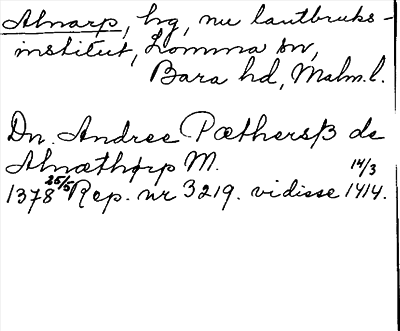 Alnarp, hg, nu lantbruks-
institut, Lomma sn,
Bara hd, Malm.l.
Dn. Andree Pæthersß de
Alnæthorp M.
1378 25/5 Rep. nr 3219. vidisse 14/3 1414.